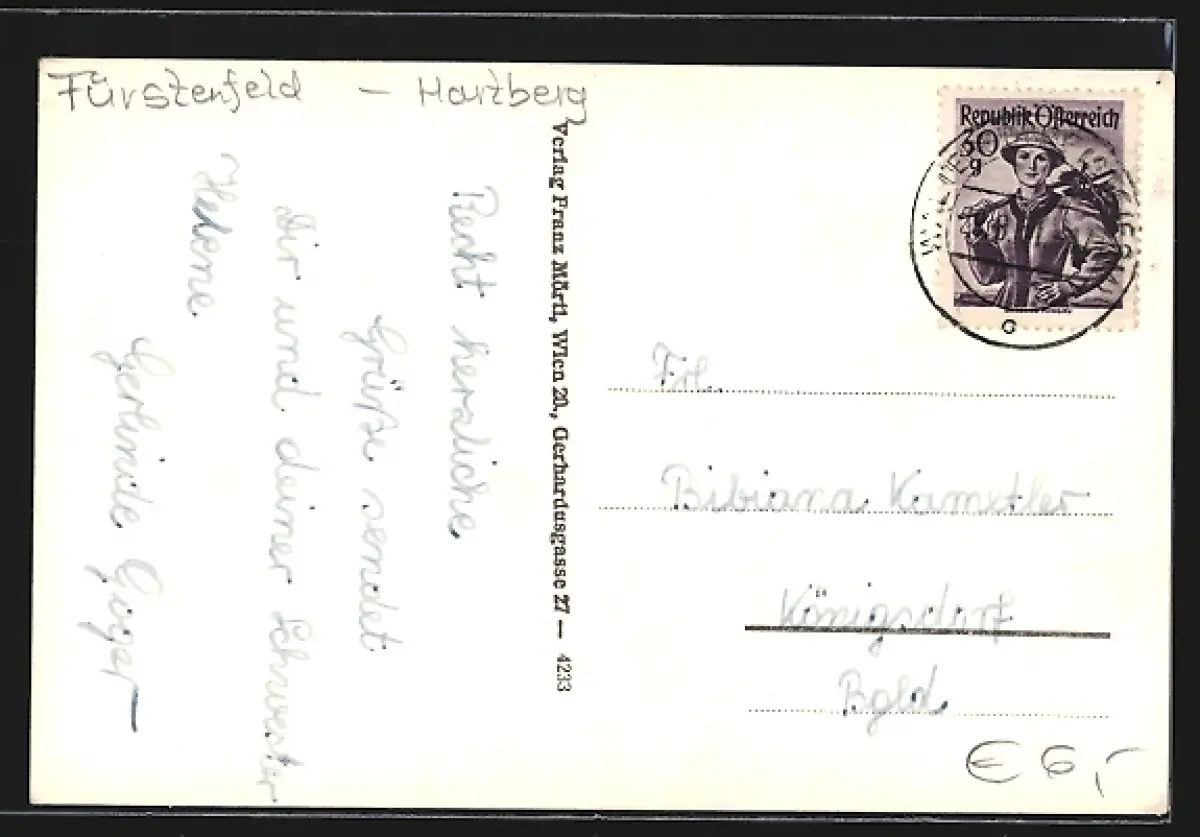 Fürstenfeld - Harzberg
Recht herzliche
Grüße sendet
Dir und deiner Schwester
Helene
Gerlinde Goger
Verlag Franz Mörtl, Wien 20., Gerhardusgasse 27 — 4233
Republik Österreich
30
g
Frl.
Bibiana Kametler
Königsdorf
Bgld.
€ 6,-